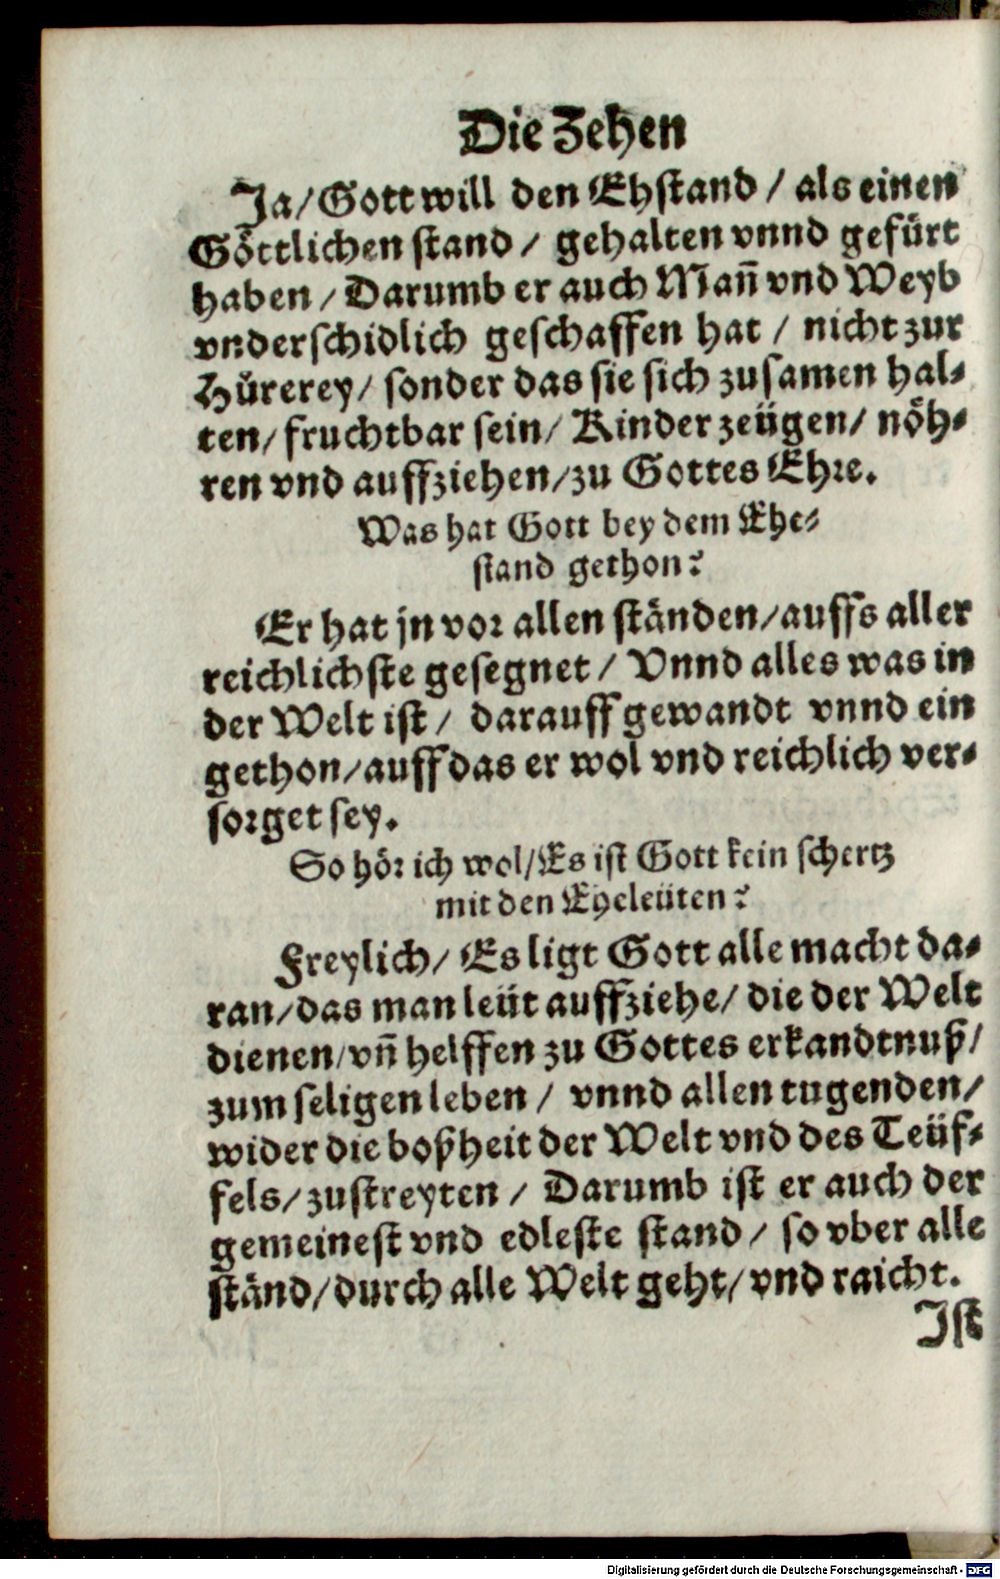 Die Zehen
Ja/ Gott will den Ehstand / als einen
Göttlichen stand / gehalten vnnd gefürt
haben / Darumb er auch Mañ vnd Weyb
vnderschidlich geschaffen hat / nicht zur
Hůrerey/ sonder das sie sich zusamen hal⸗
ten/ fruchtbar sein/ Kinder zeügen/ nöh⸗
ren vnd auffziehen/zu Gottes Ehre.
Was hat Gott bey dem Ehe⸗
stand gethon?
Er hat jn vor allen ständen/auffs aller
reichlichste gesegnet / Vnnd alles was in
der Welt ist / darauff gewandt vnnd ein
gethon/auff das er wol vnd reichlich ver⸗
sorget sey.
So hör ich wol/Es ist Gott kein schertz
mit den Eyeleüten?
Freylich/ Es ligt Gott alle macht da⸗
ran/das man leüt auffziehe/ die der Welt
dienen/vñ helffen zu Gottes erkandtnuß/
zum seligen leben / vnnd allen tugenden/
wider die boßheit der Welt vnd des Teüf⸗
fels/ zustreyten / Darumb ist er auch der
gemeinest vnd edleste stand / so vber alle
ständ/durch alle Welt geht/ vnd raicht.
Ist
Digitalisierung gefördert durch die Deutsche Forschungsgemeinschaft - DFG